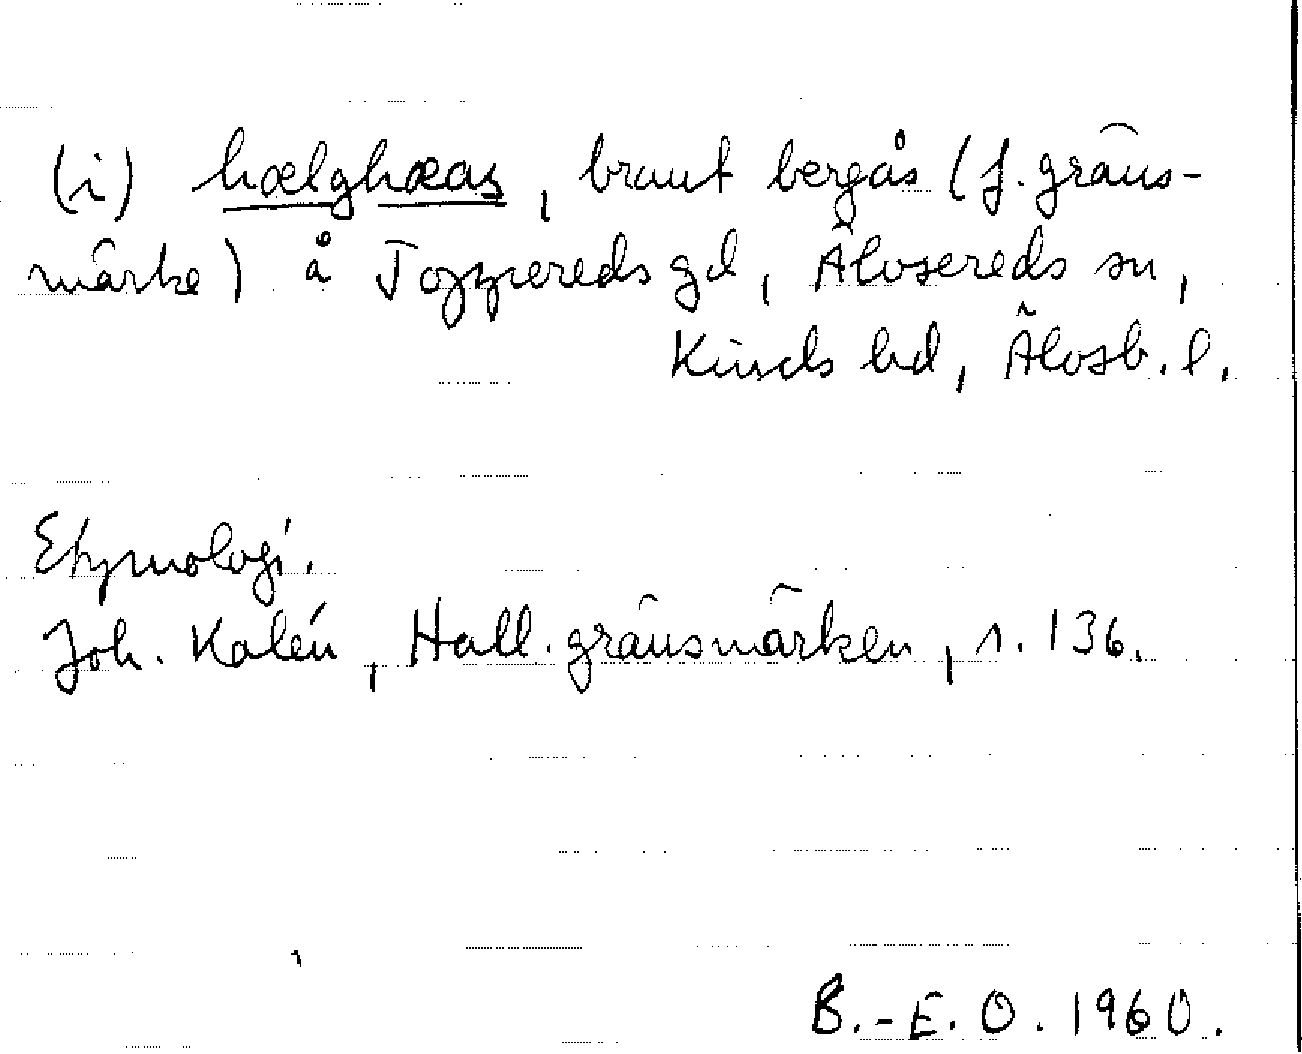 (i) hælghæas, brant bergås (f. gräns-
märke) å Toppereds gd, Älvsereds sn,
Kinds hd, Älvsb. l.
Etymologi.
Joh. Kalén, Hall. gränsmärken, s. 136.
B.-E. O. 1960.